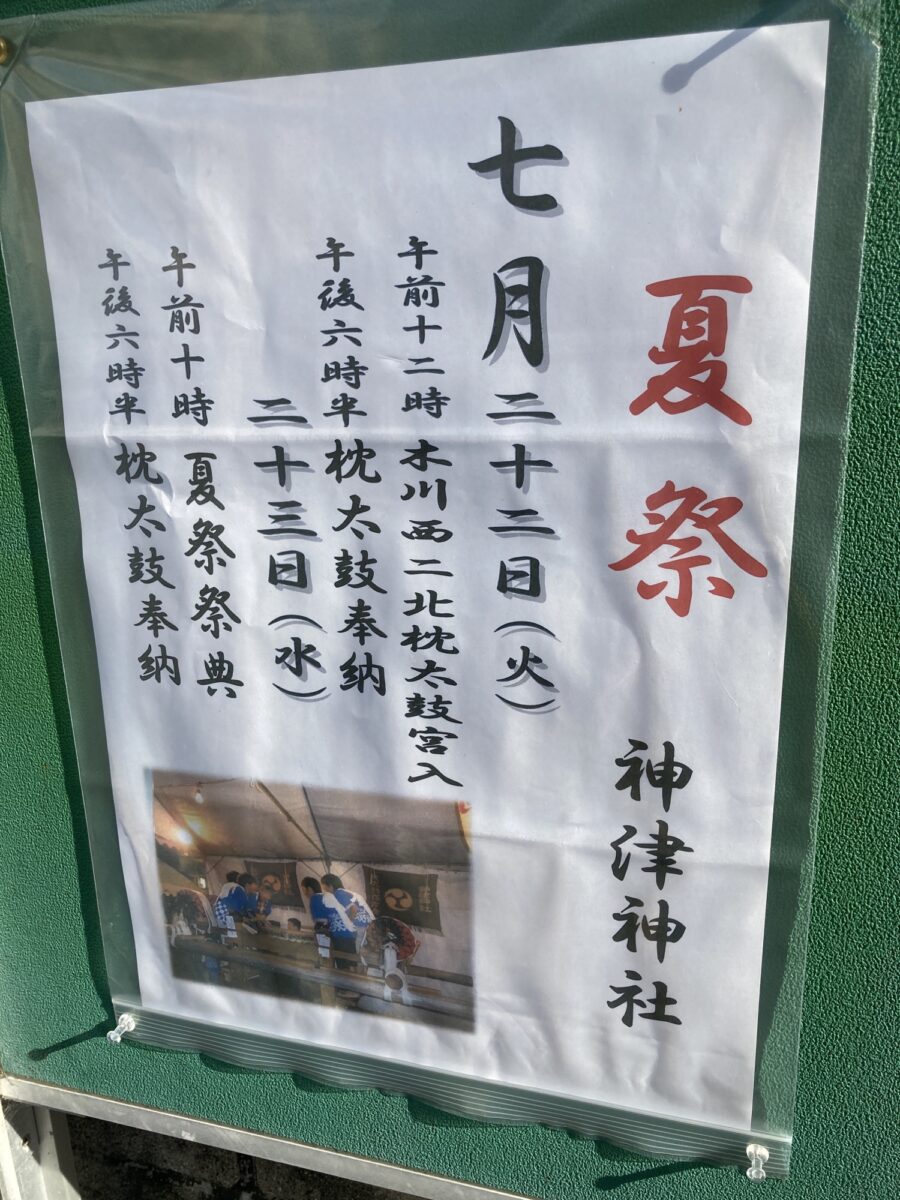 夏祭
神津神社
七月二十二日(火)
午前十二時 木川西二北枕太鼓宮入
午後六時半 枕太鼓奉納
二十三日(水)
午前十時 夏祭祭典
午後六時半 枕太鼓奉納